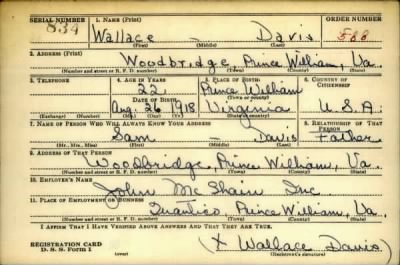 SERIAL NUMBER 1. NAME (Print) ORDER NUMBER
834 Wallace - Davis 588
(First) (Middle) (Last)
2. ADDRESS (Print)
Woodbridge, Prince William, Va.
(Number and street or R. F. D. number) (Town) (County) (State)
3. TELEPHONE 4. AGE IN YEARS 5. PLACE OF BIRTH 6. COUNTRY OF CITIZENSHIP
22 Prince William
DATE OF BIRTH (Town or county)
Aug. 26 1918 Virginia U.S.A.
(Exchange) (Number) (Mo.) (Day) (Yr.) (State or country)
7. NAME OF PERSON WHO WILL ALWAYS KNOW YOUR ADDRESS 8. RELATIONSHIP OF THAT PERSON
Sam - Davis Father
(Mr., Mrs., Miss) (First) (Middle) (Last)
9. ADDRESS OF THAT PERSON
Woodbridge, Prince William, Va.
(Number and street or R. F. D. number) (Town) (County) (State)
10. EMPLOYER'S NAME
John McShain Inc
11. PLACE OF EMPLOYMENT OR BUSINESS
Quantico, Prince William, Va.
(Number and street or R. F. D. number) (Town) (County) (State)
I AFFIRM THAT I HAVE VERIFIED ABOVE ANSWERS AND THAT THEY ARE TRUE.
REGISTRATION CARD
D. S. S. Form 1 (over)
(X Wallace Davis)
(Registrant's signature)